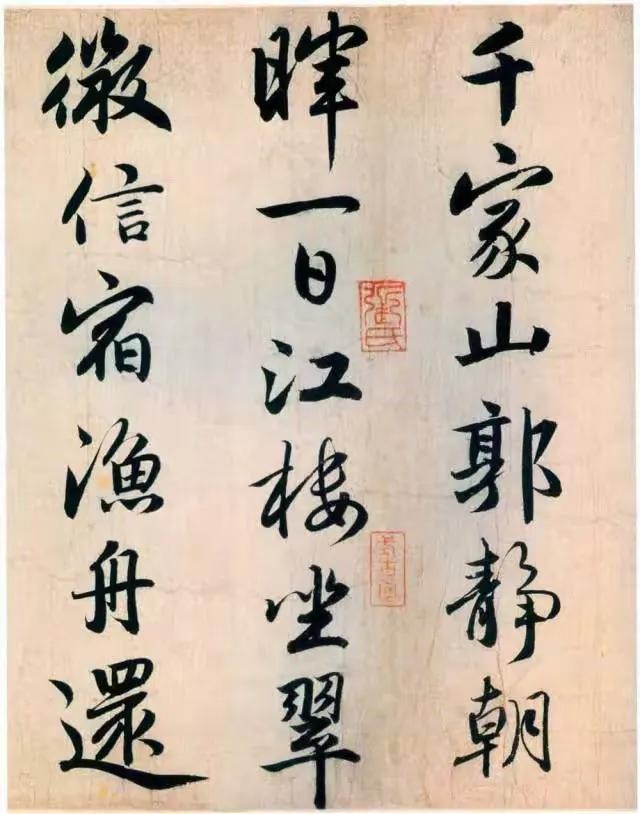 千家山郭静朝
暉一日江樓坐翠
微信宿漁舟還